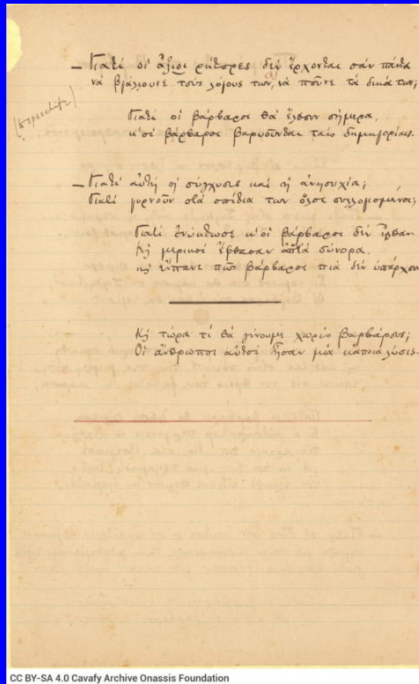 — Γιατί οι άξιοι ρήτορες δεν έρχονται σαν πάντα
να βγάλουνε τους λόγους των, να πούνε τα δικά των;
Γιατί οι βάρβαροι θα έλθουν σήμερα,
κ' οι βάρβαροι βαρυούνται ταις δημηγορίαις.
— Γιατί αυτή η σύγχυσις και η ανησυχία;
Γιατί γυρνούν στα σπίτια των όλοι συλλογισμένοι;
Γιατί ενύκτωσε κ' οι βάρβαροι δεν ήλθαν.
Κη μερικοί έφθασαν απ' τα σύνορα,
κη είπανε πως βάρβαροι πια δεν υπάρχουν
Κη τώρα τι θα γίνουμε χωρίς βαρβάρους;
Οι άνθρωποι αυτοί ήσαν μια κάποια λύσις.
CC BY-SA 4.0 Cavafy Archive Onassis Foundation